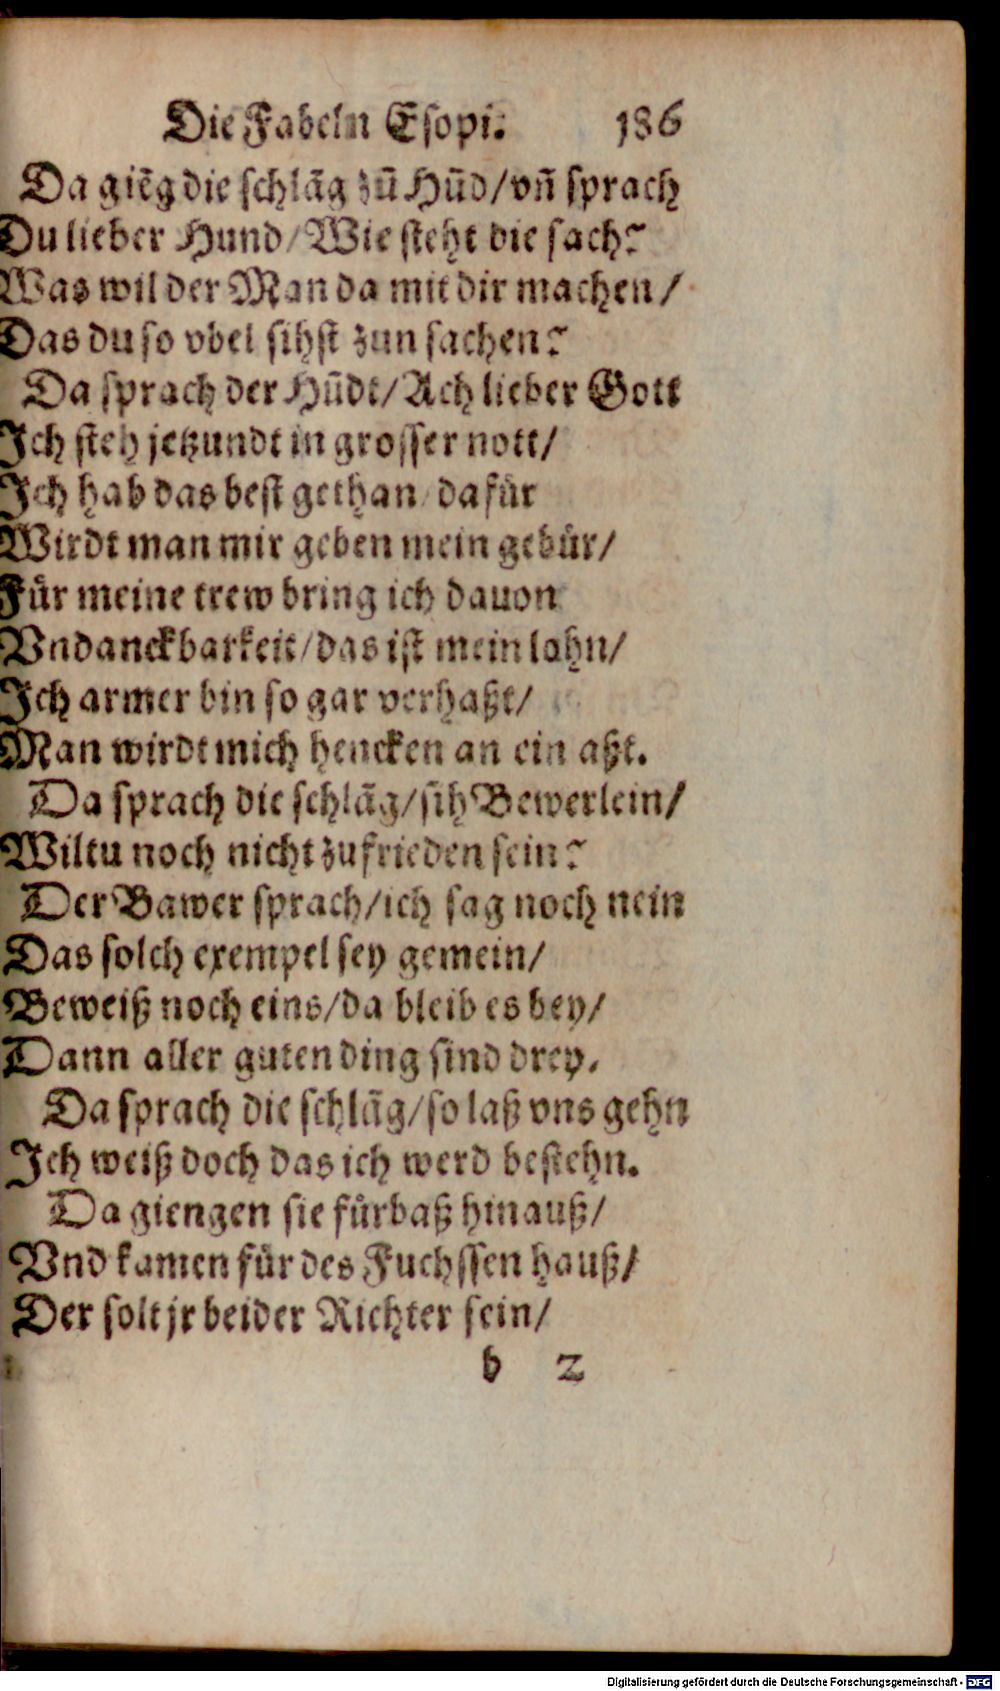 Die Fabeln Esopi. 186
Da giẽg die schlãg zũ Hũd/vñ sprach
Du lieber Hund/Wie steht die sach?
Was wil der Man da mit dir machen/
Das du so vbel sihst zun sachen?
Da sprach der Hũdt/Ach lieber Gott
Ich steh jetzundt in grosser nott/
Ich hab das best gethan/dafür
Wirdt man mir geben mein gebür/
Für meine trew bring ich dauon
Vndanckbarkeit/das ist mein lohn/
Ich armer bin so gar verhaßt/
Man wirdt mich hencken an ein aßt.
Da sprach die schlãg/sih Bewerlein/
Wiltu noch nicht zufrieden sein?
Der Bawer sprach/ich sag noch nein
Das solch exempel sey gemein/
Beweiß noch eins/da bleib es bey/
Dann aller guten ding sind drey.
Da sprach die schlãg/so laß vns gehn
Ich weiß doch das ich werd bestehn.
Da giengen sie fürbaß hinauß/
Vnd kamen für des Fuchssen hauß/
Der solt jr beider Richter sein/
b 2
Digitalisierung gefördert durch die Deutsche Forschungsgemeinschaft - DFG